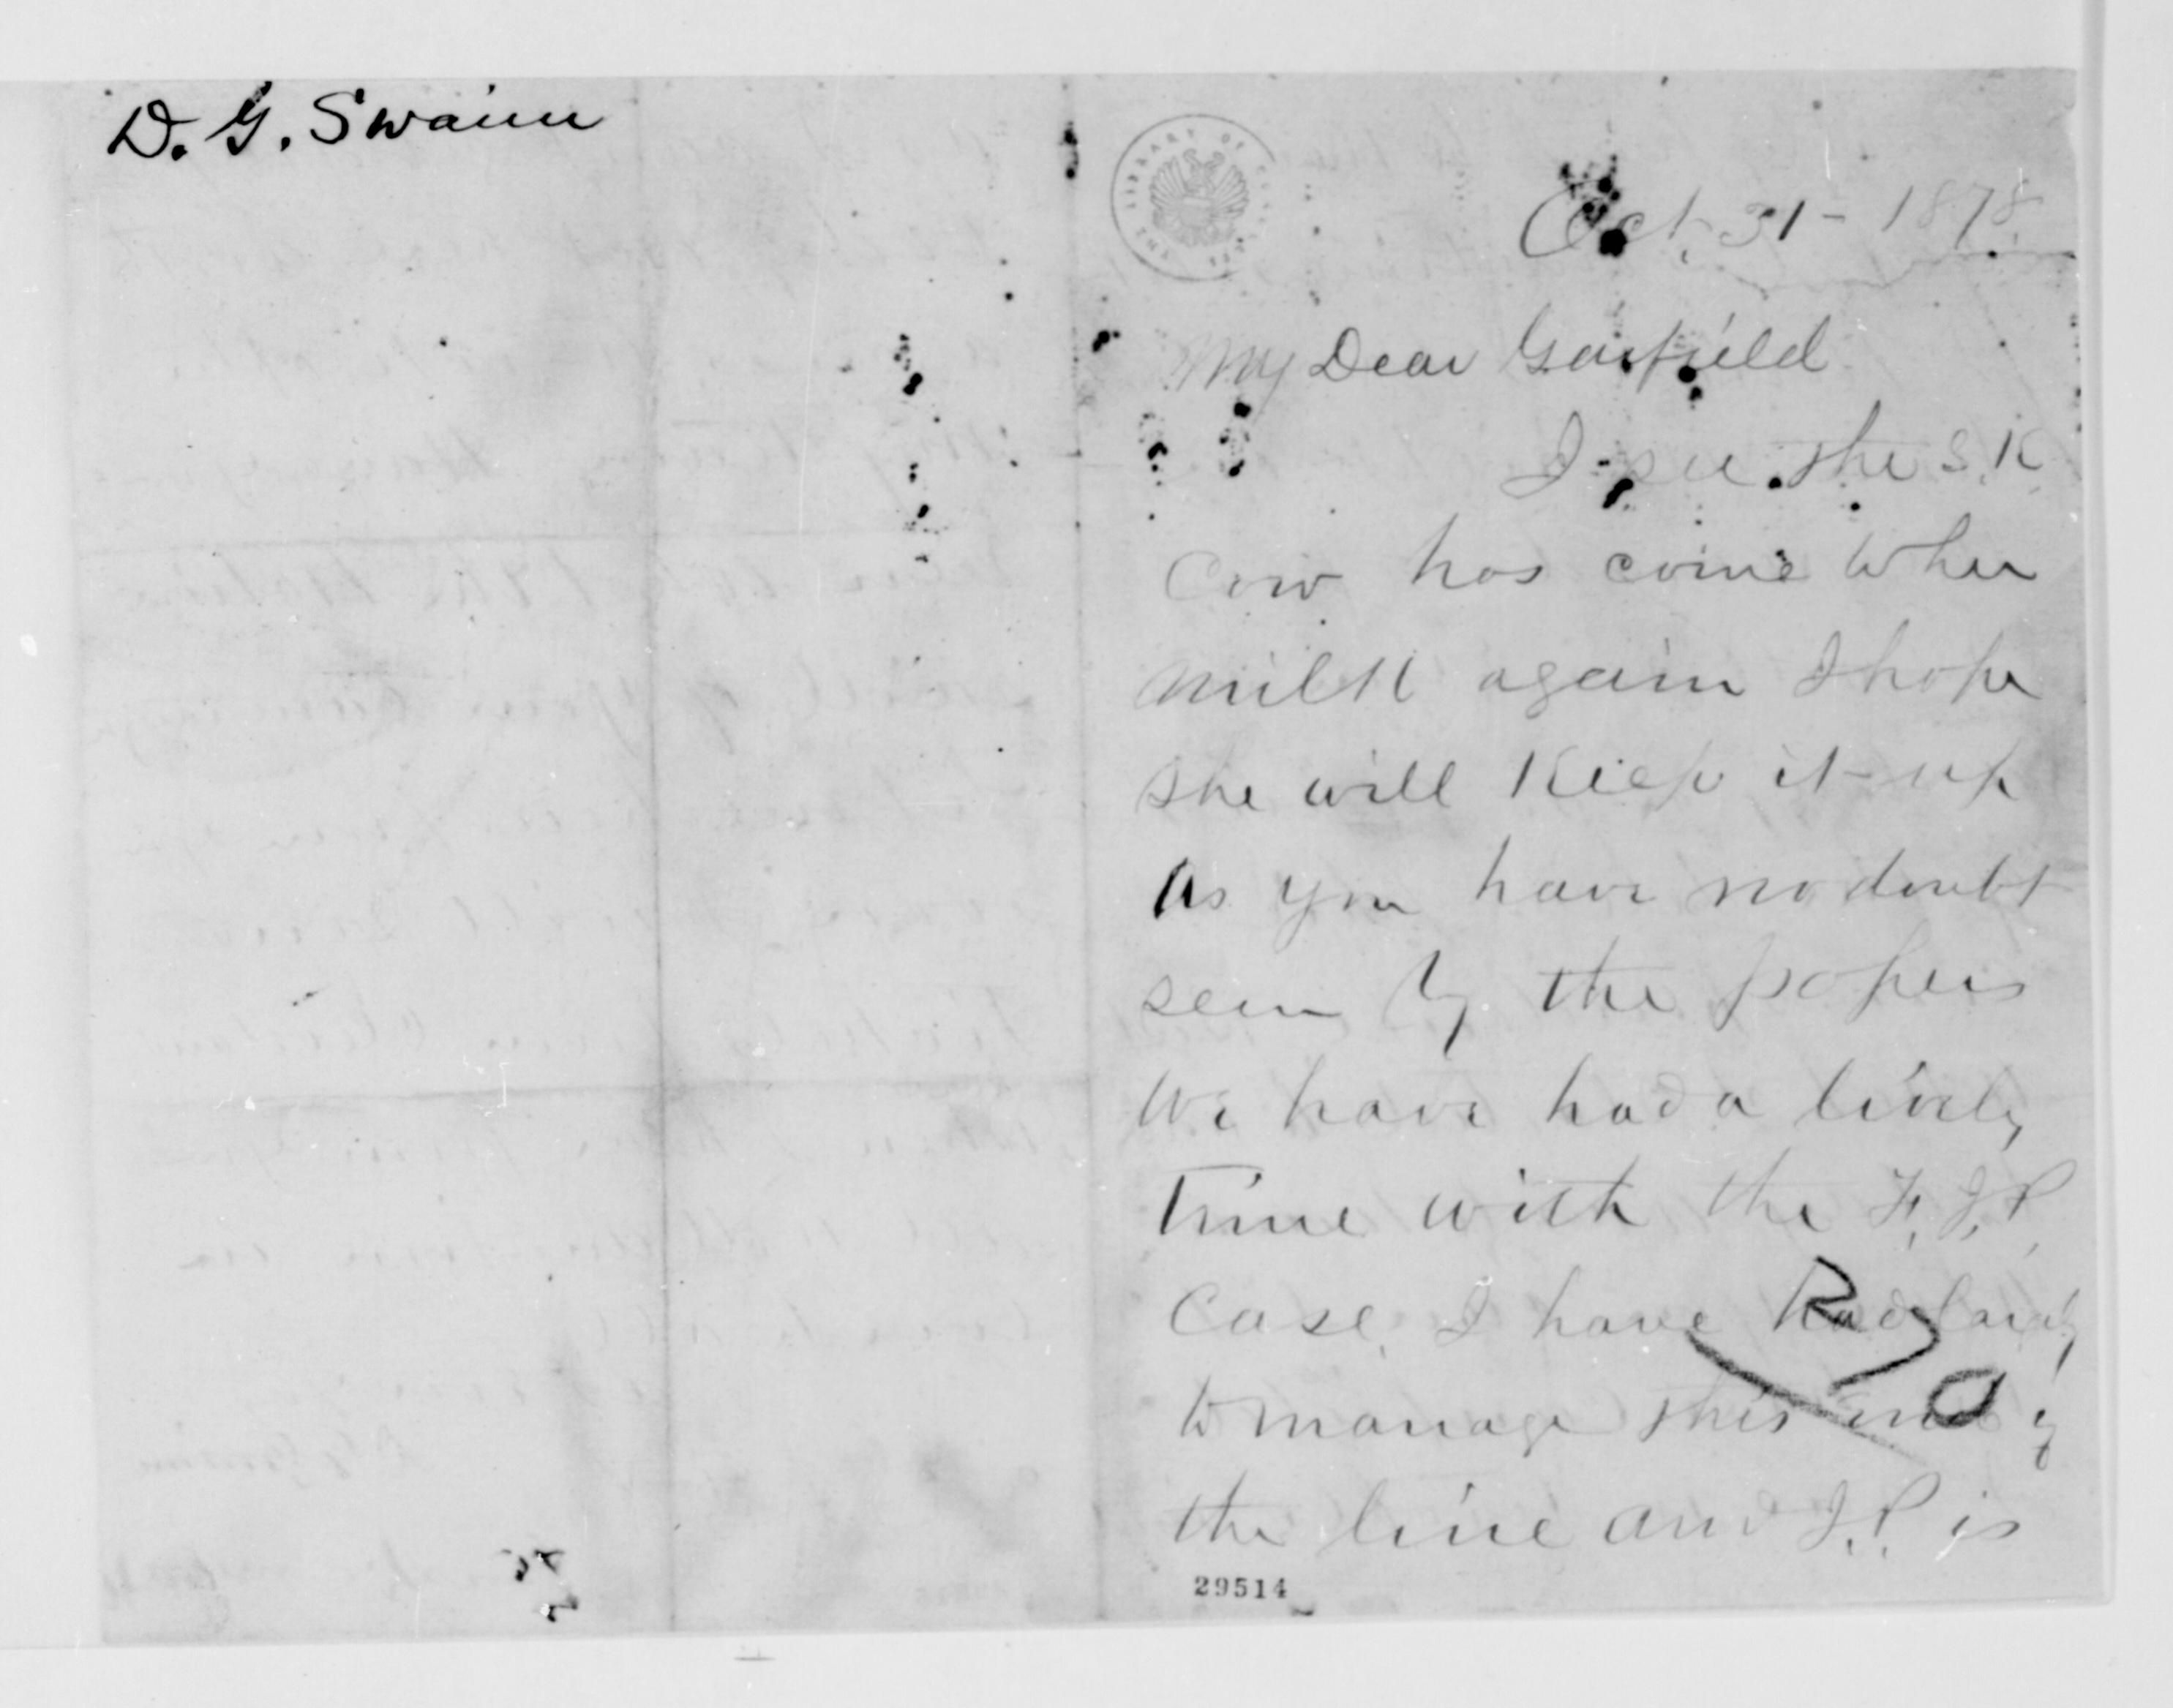 D. G. Swaim
Oct. 31 - 1878
My Dear Garfield
I see the S. K.
Cow has come to her
milk again I hope
she will Keep it up
As you have no doubt
seen by the papers
We have had a lively
Time with the F. J. P.
Case. I have had
to manage this end of
the line and J. P. is
29514